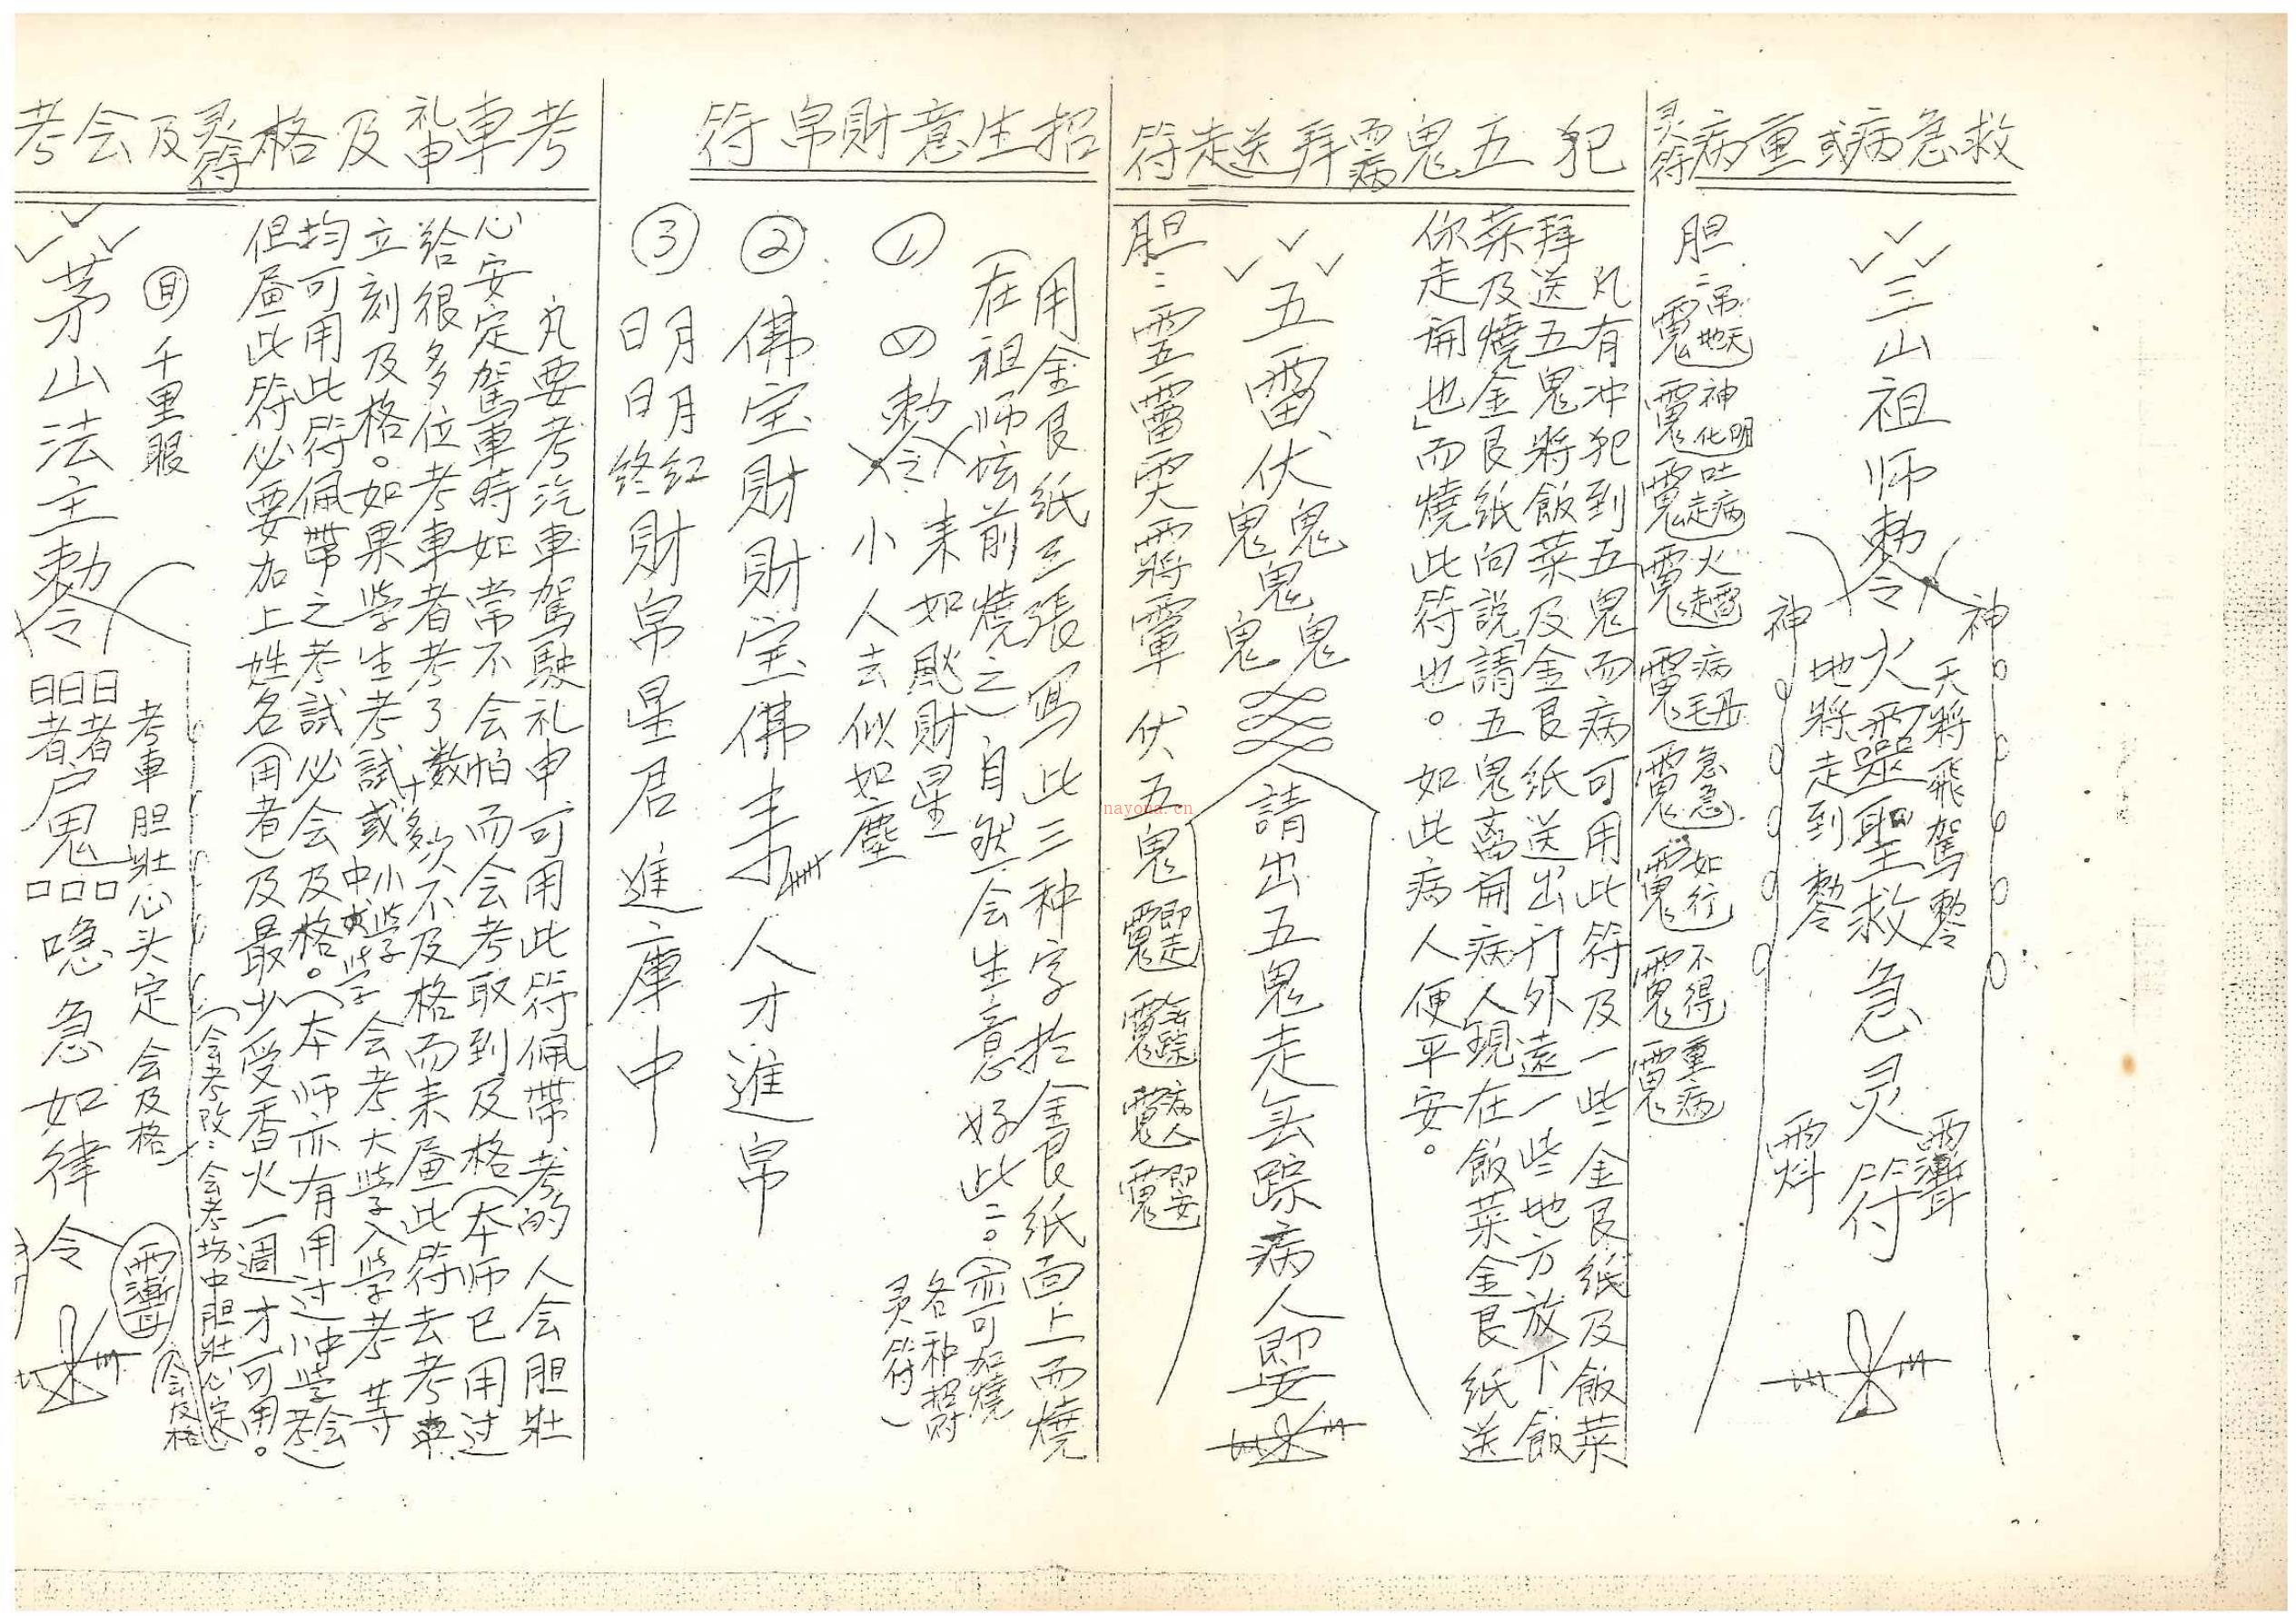 救急病或重病灵符
三山祖师勅令火靈聖救急灵符
神
天將飛駕勅令
神
地將走到勅令
胆:
吊天地
神化明
吐走病
急急
如行
不得
重病
犯五鬼病拜送走符
凡有冲犯到五鬼而病可用此符及一些金艮紙及飯菜
拜送五鬼將飯菜及金艮紙送出门外遠一些地方放下飯
菜及燒金艮紙向説「請五鬼离開病人現在飯菜金艮紙送
你走開也」而燒此符也。如此病人便平安。
五雷伏鬼鬼鬼鬼鬼
請出五鬼走去踪病人即安
胆:
伏五鬼
即走
病人
即安
nayona.cn
招生意財帛符
用金艮纸三張写此三种字扵金艮纸面上而燒
(在祖师坛前燒之)自然会生意好此二。(亦可加燒
各种招財
灵符)
①
勅令 来如颩財星
小人去似如塵
② 佛宝財財宝佛来人才進帛
③ 明明
终红財帛星君進庫中
考車礼申及格灵符及会考
凡要考汽車駕駛礼申可用此符佩帶考的人会胆壯
心安定駕車時如常不会怕而会考取到及格(本师已用过
给很多位考車者考了数十多次不及格而来画此符去考車
立刻及格。如果学生考試或小学中学会考大学入学考等
均可用此符佩帶之考試必会及格。(本师亦有用过中小学会考)
但画此符必要加上姓名(用者)及最少受香火一週才可用。
(会考改:会考坊中胆壯心定)
千里眼
考車胆壯心头定会及格
会及格
茅山法主勅令
急如律令